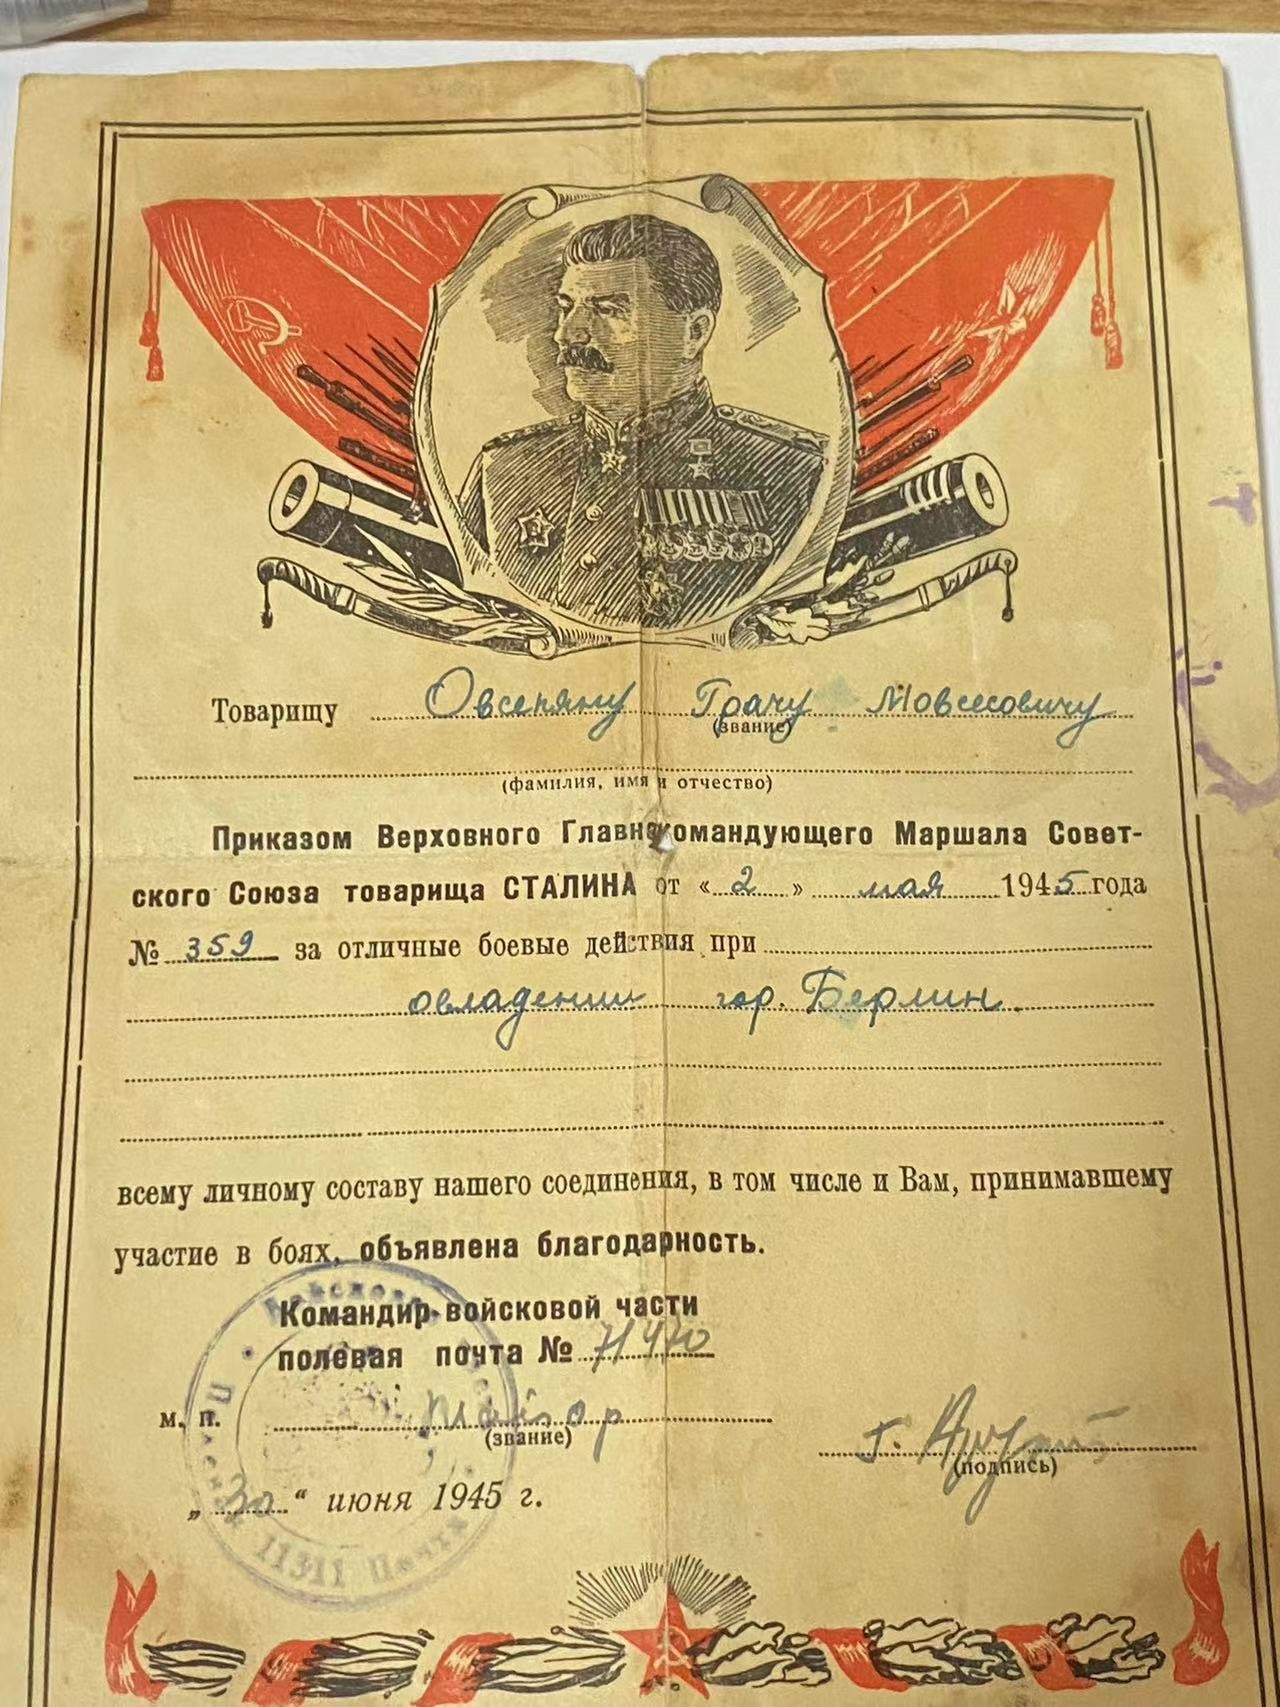 Товарищу Овсепяну Грачу Мовсесовичу
(звание)
(фамилия, имя и отчество)
Приказом Верховного Главнокомандующего Маршала Совет-
ского Союза товарища СТАЛИНА от « 2 » мая 1945 года
№ 359 за отличные боевые действия при
овладении гор. Берлин.
всему личному составу нашего соединения, в том числе и Вам, принимавшему
участие в боях, объявлена благодарность.
Командир войсковой части
полевая почта №
м. п. майор
(звание)
(подпись)
„ 30 “ июня 1945 г.
Полевая Почта